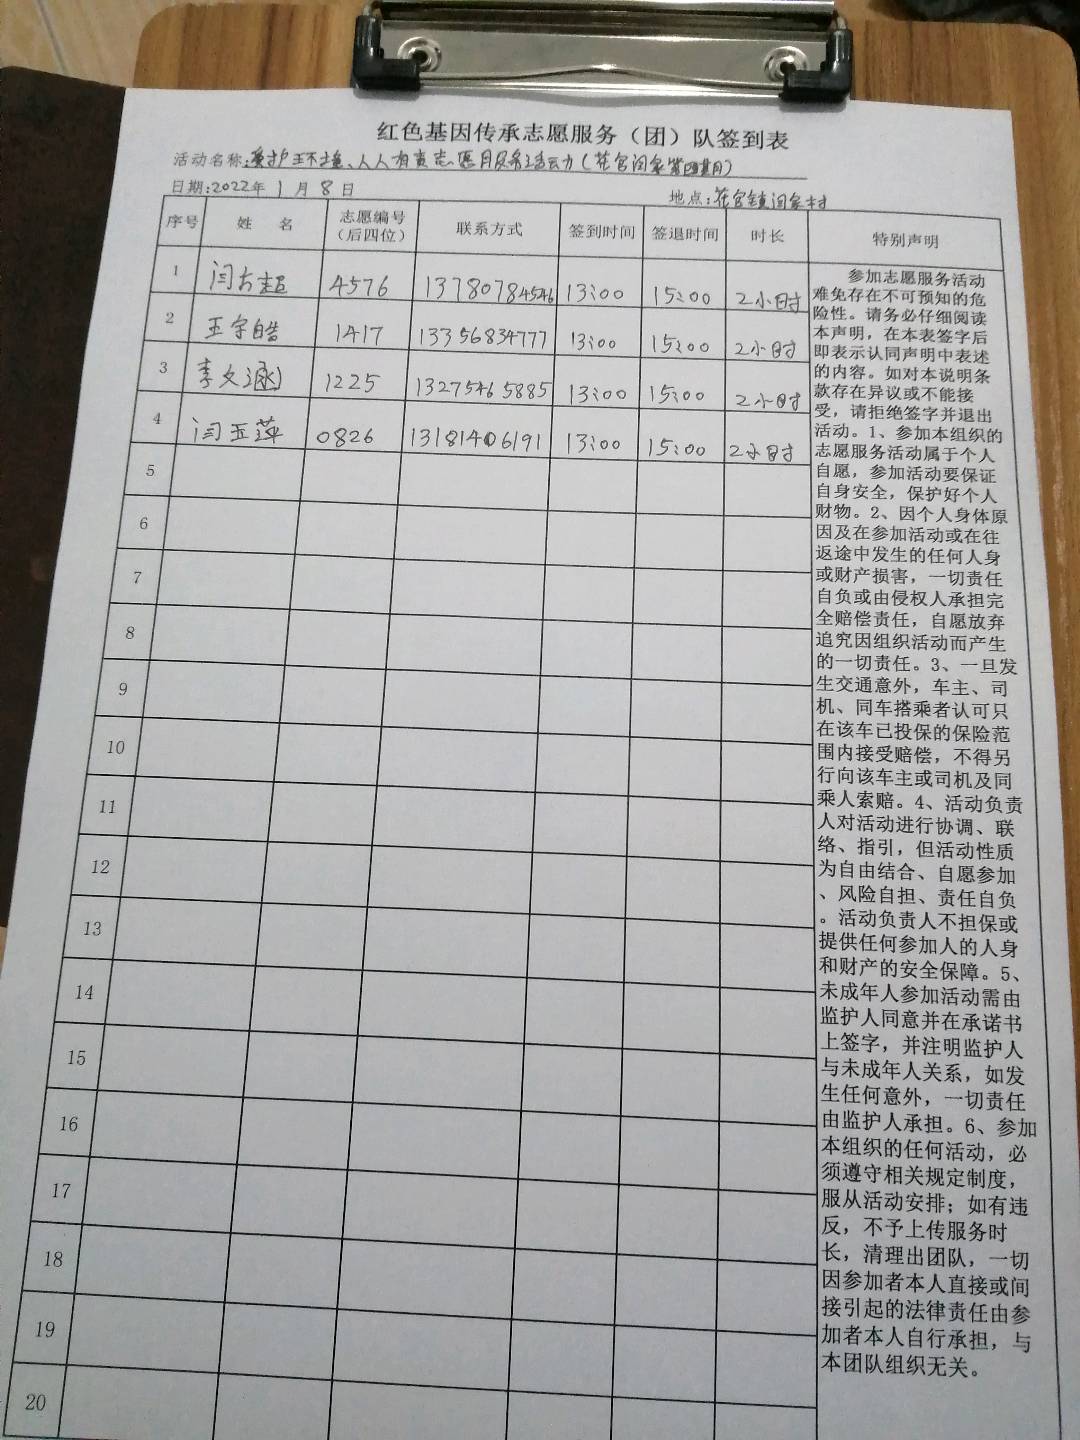 红色基因传承志愿服务（团）队签到表
活动名称:爱护环境、人人有责志愿服务活动(花官闫家第四期)
日期:2022年1月8日
地点:花官镇闫家村
序号 姓 名 志愿编号（后四位） 联系方式 签到时间 签退时间 时长 特别声明
1 闫 超 4576 13780784546 13:00 15:00 2小时
2 王宇皓 1417 13356834777 13:00 15:00 2小时
3 李文涵 1225 13275465885 13:00 15:00 2小时
4 闫玉萍 0826 13181406191 13:00 15:00 2小时
5
6
7
8
9
10
11
12
13
14
15
16
17
18
19
20
参加志愿服务活动
难免存在不可预知的危
险性。请务必仔细阅读
本声明，在本表签字后
即表示认同声明中表述
的内容。如对本说明条
款存在异议或不能接
受，请拒绝签字并退出
活动。1、参加本组织的
志愿服务活动属于个人
自愿，参加活动要保证
自身安全，保护好个人
财物。2、因个人身体原
因及在参加活动或在往
返途中发生的任何人身
或财产损害，一切责任
自负或由侵权人承担完
全赔偿责任，自愿放弃
追究因组织活动而产生
的一切责任。3、一旦发
生交通意外，车主、司
机、同车搭乘者认可只
在该车已投保的保险范
围内接受赔偿，不得另
行向该车主或司机及同
乘人索赔。4、活动负责
人对活动进行协调、联
络、指引，但活动性质
为自由结合、自愿参加
、风险自担、责任自负
。活动负责人不担保或
提供任何参加人的人身
和财产的安全保障。5、
未成年人参加活动需由
监护人同意并在承诺书
上签字，并注明监护人
与未成年人关系，如发
生任何意外，一切责任
由监护人承担。6、参加
本组织的任何活动，必
须遵守相关规定制度，
服从活动安排；如有违
反，不予上传服务时
长，清理出团队，一切
因参加者本人直接或间
接引起的法律责任由参
加者本人自行承担，与
本团队组织无关。